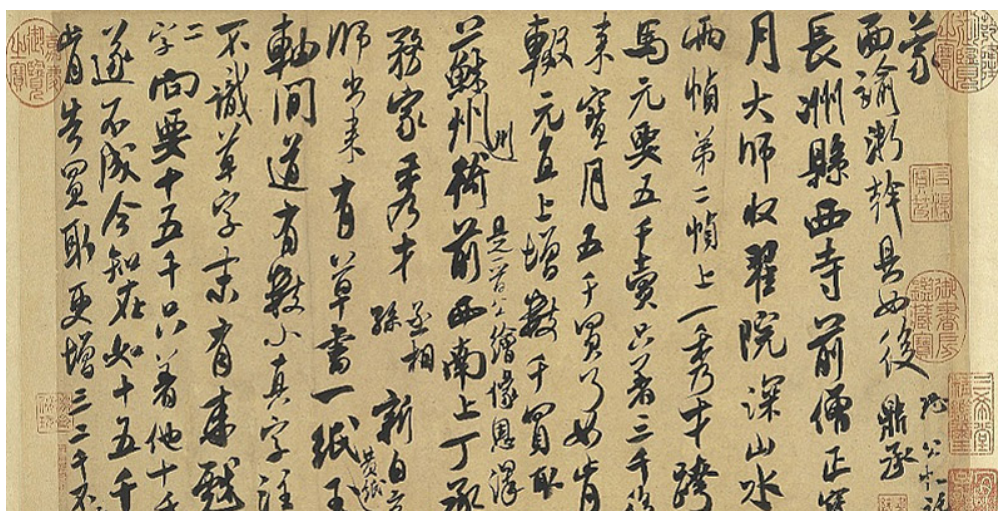 芾
面諭浙幹具如後
恐公忙
鼎承
長洲縣西寺前僧正寶
月大師收翟院深山水
兩幀第二幀上一秀才跨
馬元要五千賣只著三千後
來寶月五千買了如肯
輟元直上增數千買取
蘇州州衙前西南上丁承
務家秀才丞相孫新自
師出來有草書一紙黃紙
軸間道有數小真字注
不識草字末有來戲
二字向要十五千只著他十千
遂不成今知在如十五千
肯告買取更增三二千不